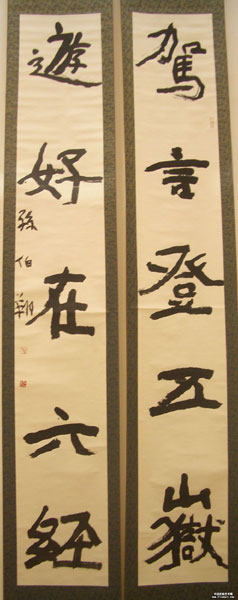 駕言登五嶽
遊好在六經
孫伯翔